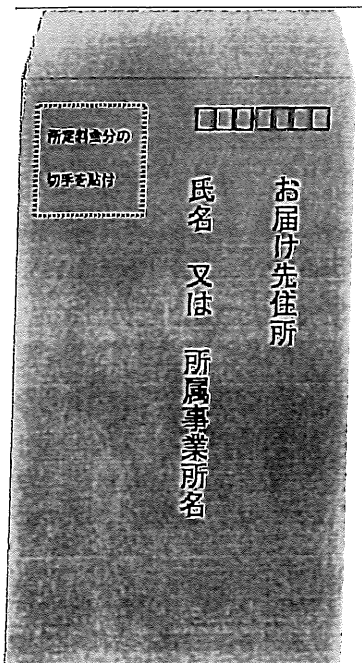 所定料金分の
切手を貼付
お届け先住所
氏名　又は　所属事業所名